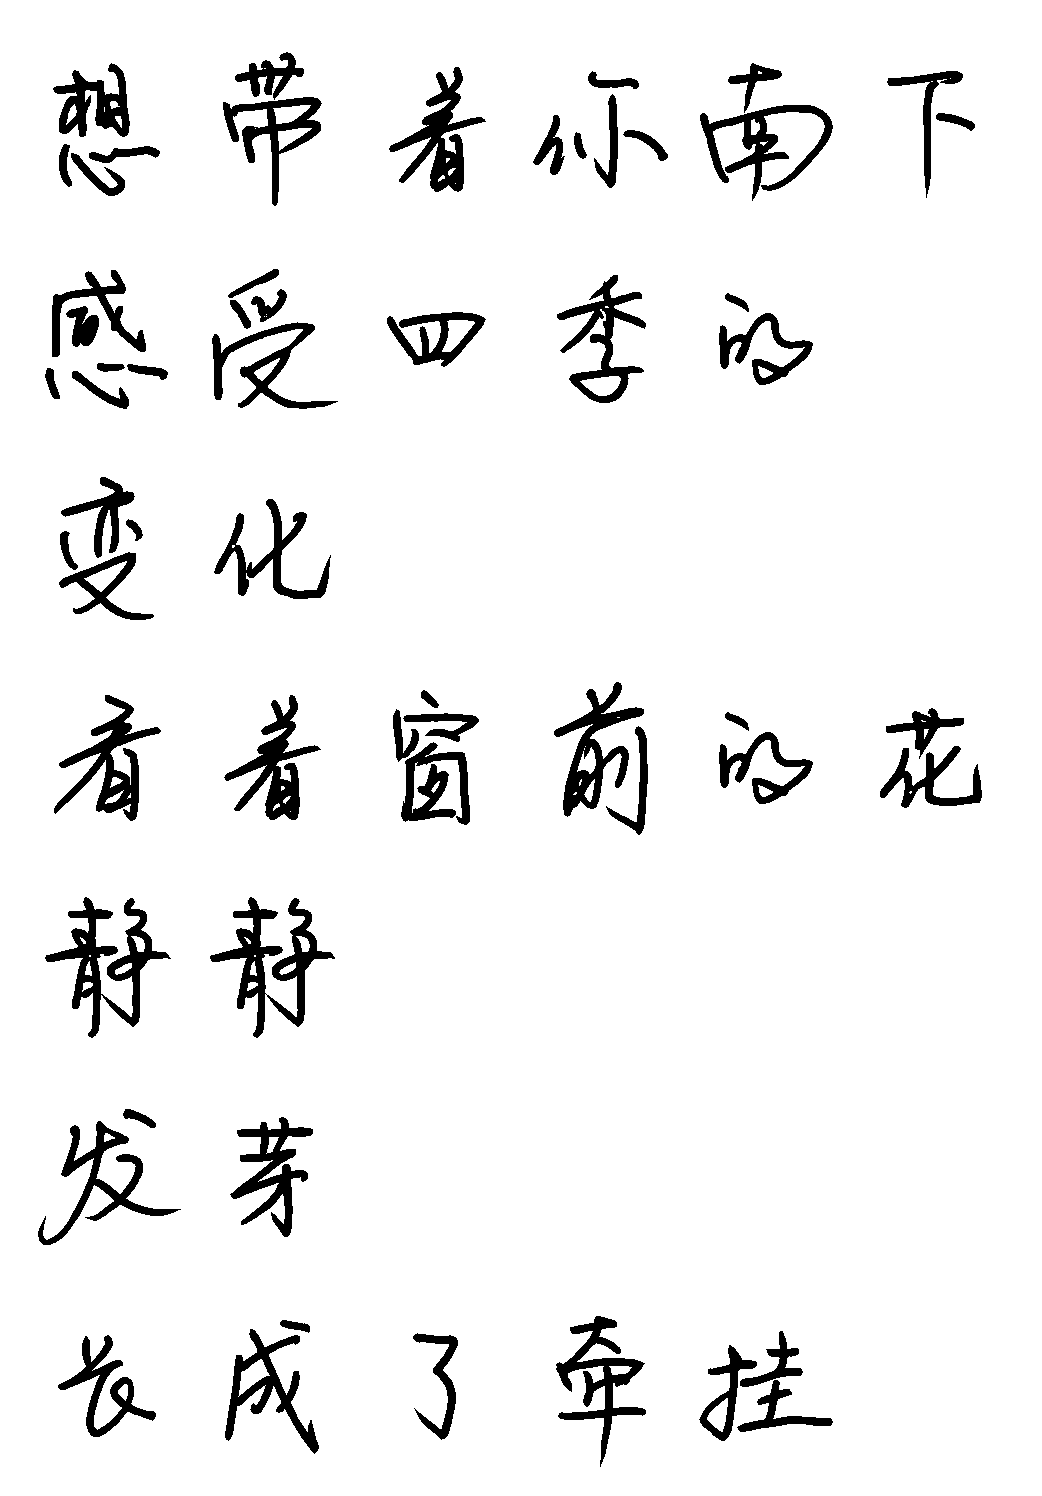 想带着你南下
感受四季的
变化
看着窗前的花
静静
发芽
长成了牵挂